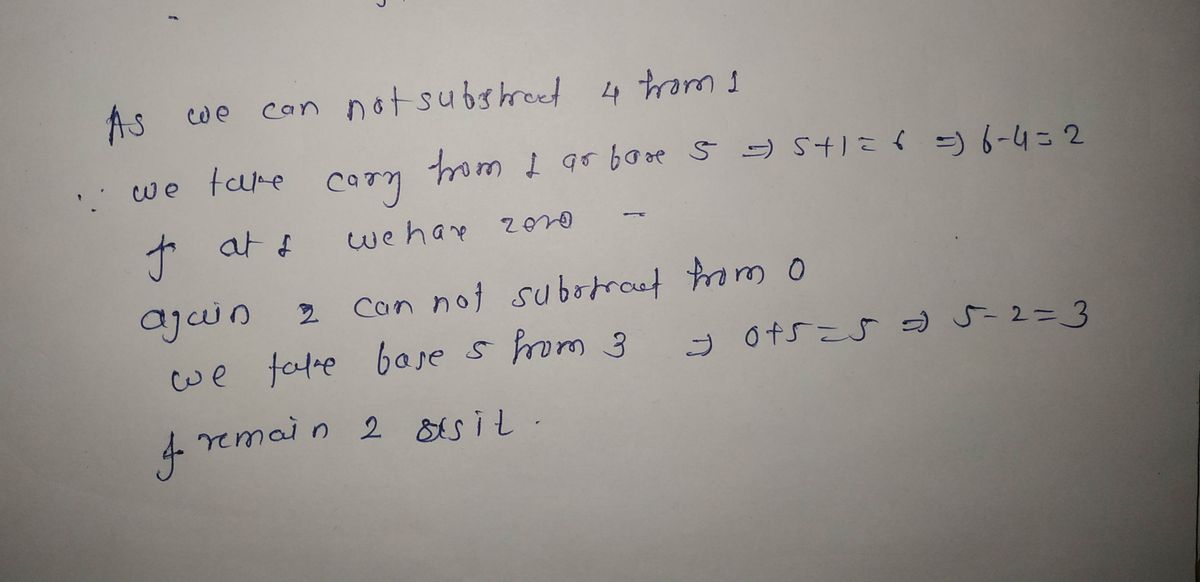 As we can not substract 4 from 1
∴ we take cary from 1 as base 5 ⇒ 5+1=6 ⇒ 6-4=2
& at 1 we have zero -
again 2 can not substract from 0
we take base 5 from 3 ⇒ 0+5=5 ⇒ 5-2=3
& remain 2 as it.